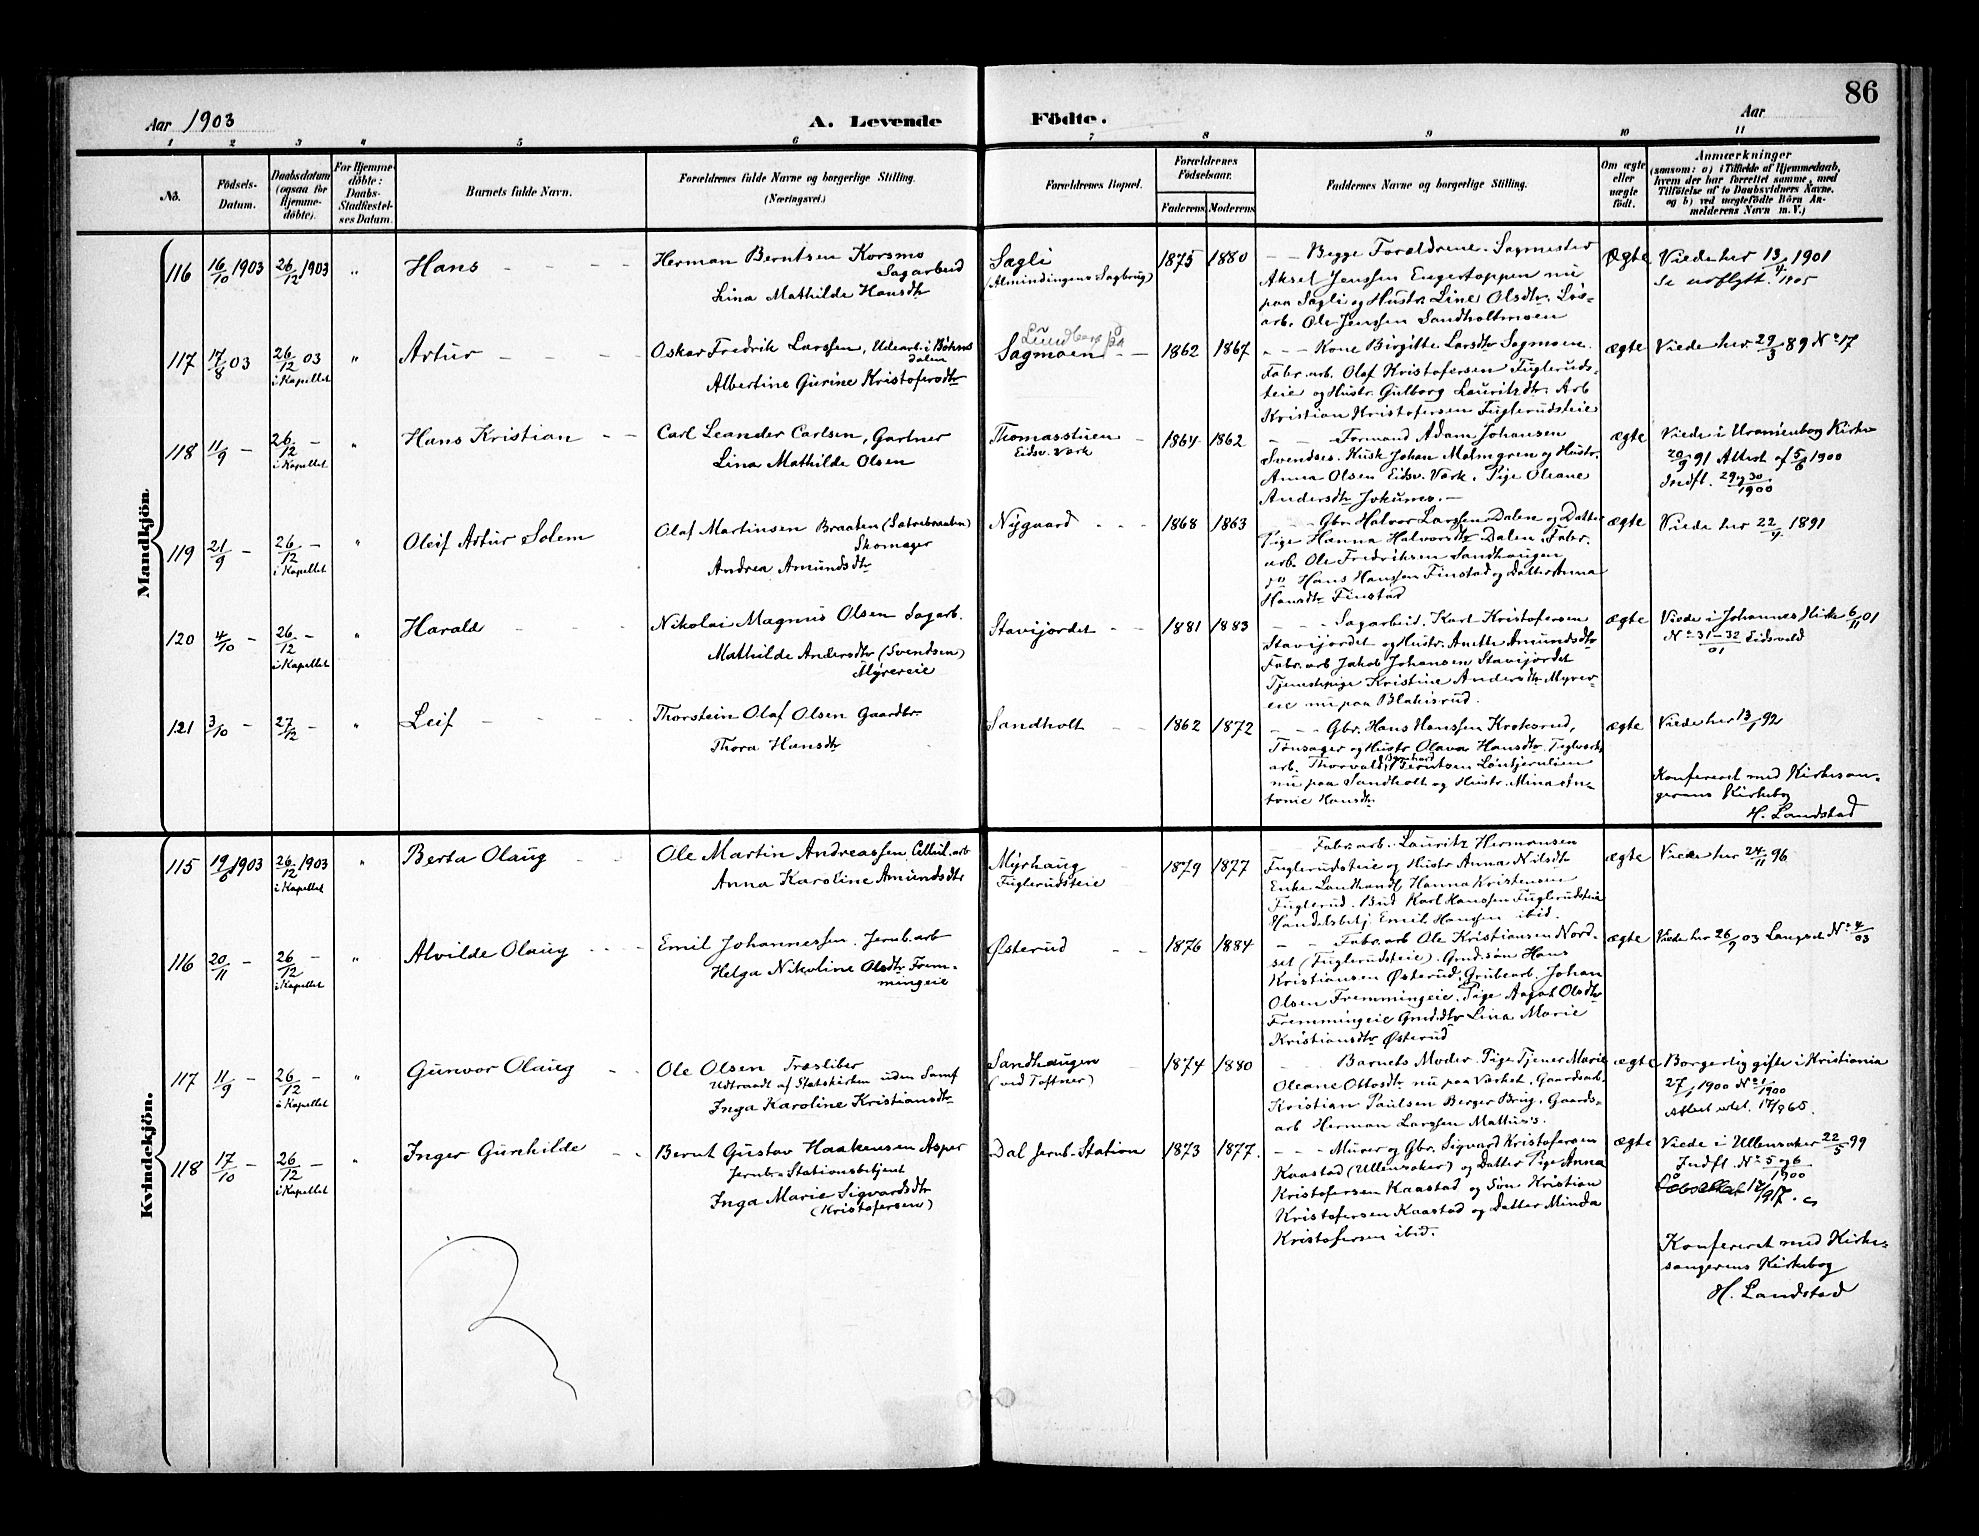 86
Aar 1903
A. Levende
Födte.
Aar
1 2 3 4 5 6 7 8 9 10 11
No.
Födsels-
Datum.
Daabsdatum
(ogsaa for
Hjemme-
döbte).
For Hjemme-
döbte:
Daabs
Stadfæstel-
ses Datum.
Barnets fulde Navn.
Forældrenes fulde Navne og borgerlige Stilling.
(Næringsvei.)
Forældrenes Bopæl.
Forældrenes
Födselsaar.
Faderens
Moderens
Faddernes Navne og borgerlige Stilling.
Om ægte
eller
uægte
födt.
Anmærkninger
(saasom: a) i Tilfælde af Hjemmedaab,
hvem der har forrettet samme, med
Tilföielse af to Daabsvidners Navne.
og b) ved uægtefödte Börn An-
melderens Navn m. V.)
Mandkjön.
116 16/10 1903 26/12 1903 " Hans
Herman Berntsen Korsmo
Sagarbeid
Lina Mathilde Hansdtr
Sagli
(Almindingens Sagbrug)
1875 1880
Begge Forældrene. Sagmester
Aksel Jenssen Engertoppen nu
paa Sagli og Hustr. Line Olsdtr. Løs-
arb. Ole Jenssen Sandholtmoen
Ægte
Viede her 13/4 1901
Se utflytt. 1905
117 17/8 03 26/12 03
i Kapellet
" Artur
Oskar Fredrik Larssen, Udearb. i Bøhns
dalen
Albertine Gurine Kristofersdtr
Sagmoen
1862 1867
Kone Birgitte Larsdtr Sagmoen.
Fabr. arb. Olaf Kristofersen Fuglerud-
teie og Hustr. Gulborg Lauritzdtr. Arb
Kristian Kristofersen Fuglerudsteie
ægte
Viede her 29/3 89 No 17
118 11/9 – 26/12 –
i Kapellet
" Hans Kristian
Carl Leander Carlsen, Gartner
Lina Mathilde Olsen
Thomasstuen
Eidsv. Værk
1864 1862
Formand Adam Johansen
Svendses. Kusk Johan Malmgren og Hustr.
Anna Olsen Eidsv. Værk. Pige Oleane
Andersdtr Jokums.
ægte
Viede i Uranienborg Kirke
20/9 91 Attest af 5/6 1900
Indfl. 29 og 30/1900
119 21/9 – 26/12 –
i Kapellet
" Oleif Artur Solem
Olaf Martinsen Braaten (Sætrebraaten)
Skomager
Andrea Amundsdtr
Nygaard
1868 1863
Gbr. Halvor Larssen Dalen og Datter
Pige Hanna Halvorsdtr Dalen. Fabr.
arb. Ole Fredriksen Sandhaugen
Hans Hanssen Finstad og Datter Anna
Hansdtr Finstad
ægte
Viede her 22/4 1891
120 4/10 – 26/12 –
i Kapellet
" Harald
Nikolai Magnus Olsen Sagarb.
Mathilde Andersdtr (Svendsen)
Myrereie
Stavijordet
1881 1883
Sagarbeid. Karl Kristofersen
Stavijordet og Hustr. Anette Amundsdtr
Fabr. arb Jakob Johansen Stavijordet
Tjenestepige Kristine Andersdtr Myrer-
eie nu paa Blakisrud.
ægte
Viede i Johannes Kirke 6/11 01
No 31–32/01 Eidsvold
121 3/10 – 27/12 –
" Leif
Thorstein Olaf Olsen Gaardbr.
Thora Hansdtr
Sandholt
1862 1872
Gbr. Hans Hanssen Kroksrud,
Tønsager og Hustr Olava Hansdtr. Teglværks
arb. Thorvald Bernhard Berntsen Løntjernlien
nu paa Sandholt og Hustr. Mina An-
tonie Hansdtr
ægte
Viede her 13/1 92
Konfereret med Kirkesan-
gerens Kirkebog
H. Landstad
Kvindekjön.
115 19/6 1903 26/12 1903
i Kapellet
" Berta Olaug
Ole Martin Andreassen, Cellul. arb
Anna Karoline Amundsdtr
Myrhaug
Fuglerudsteie
1879 1877
Fabr. arb. Lauritz Hermansen
Fuglerudsteie og Hustr Anna Nilsdtr
Enke Landhandl. Hanna Kristensen
Fuglerud. Bud Karl Hanssen Fuglerudsteie
Handelsbetj Emil Hanssen ibid.
ægte
Viede her 24/11 96
116 20/11 – 26/12 –
i Kapellet
" Alvilde Olaug
Emil Johannessen. Jernb. arb
Helga Nikoline Olsdtr Frem-
mingeie
Østerud
1876 1884
Fabr. arb Ole Kristiansen Nord-
set (Fuglerudsteie). Grd. søn Hans
Kristiansen Østerud, Grubearb. Johan
Olsen Fremmingeie. Pige Aagot Olsdtr
Fremmingeie Grd.dtr Lina Marie
Kristiansdtr Østerud
ægte
Viede her 26/9 03 Langset No 4/03
117 11/9 – 26/12 –
i Kapellet
" Gunvor Olaug
Ole Olsen Træsliber
Udtraadt af Statskirken uden Samf
Inga Karoline Kristiansdtr
Sandhaugen
(ved Toftner)
1874 1880
Barnets Moder. Pige Tjener Marie
Oleane Ottosdtr nu paa Værket, Gaardsarb.
Kristian Paulsen Berger Brug, Gaards-
arb Herman Larssen Mattis's.
ægte
Borgerlig gifte i Kristiania
27/1 1900 No 1/1900
Attest utst. 17/9 65.
118 17/10 – 26/12 –
i Kapellet
Inger Gunhilde
Bernt Gustav Haakensen Asper
Jernb.-Stationsbetjent
Inga Marie Sigvardsdtr
(Kristofersen)
Dal Jernb-Station
1873 1877.
Murer og Gbr. Sigvard Kristofersen
Kaastad (Ullensaker) og Datter Pige Anna
Kristofersen Kaastad og Søn Kristian
Kristofersen Kaastad og Datter Minda
Kristofersen ibid.
ægte
Viede i Ullensaker 22/5 99
Indfl. No 5 og 6/1900
Konfereret med Kirke-
sangerens Kirkebog
H. Landstad